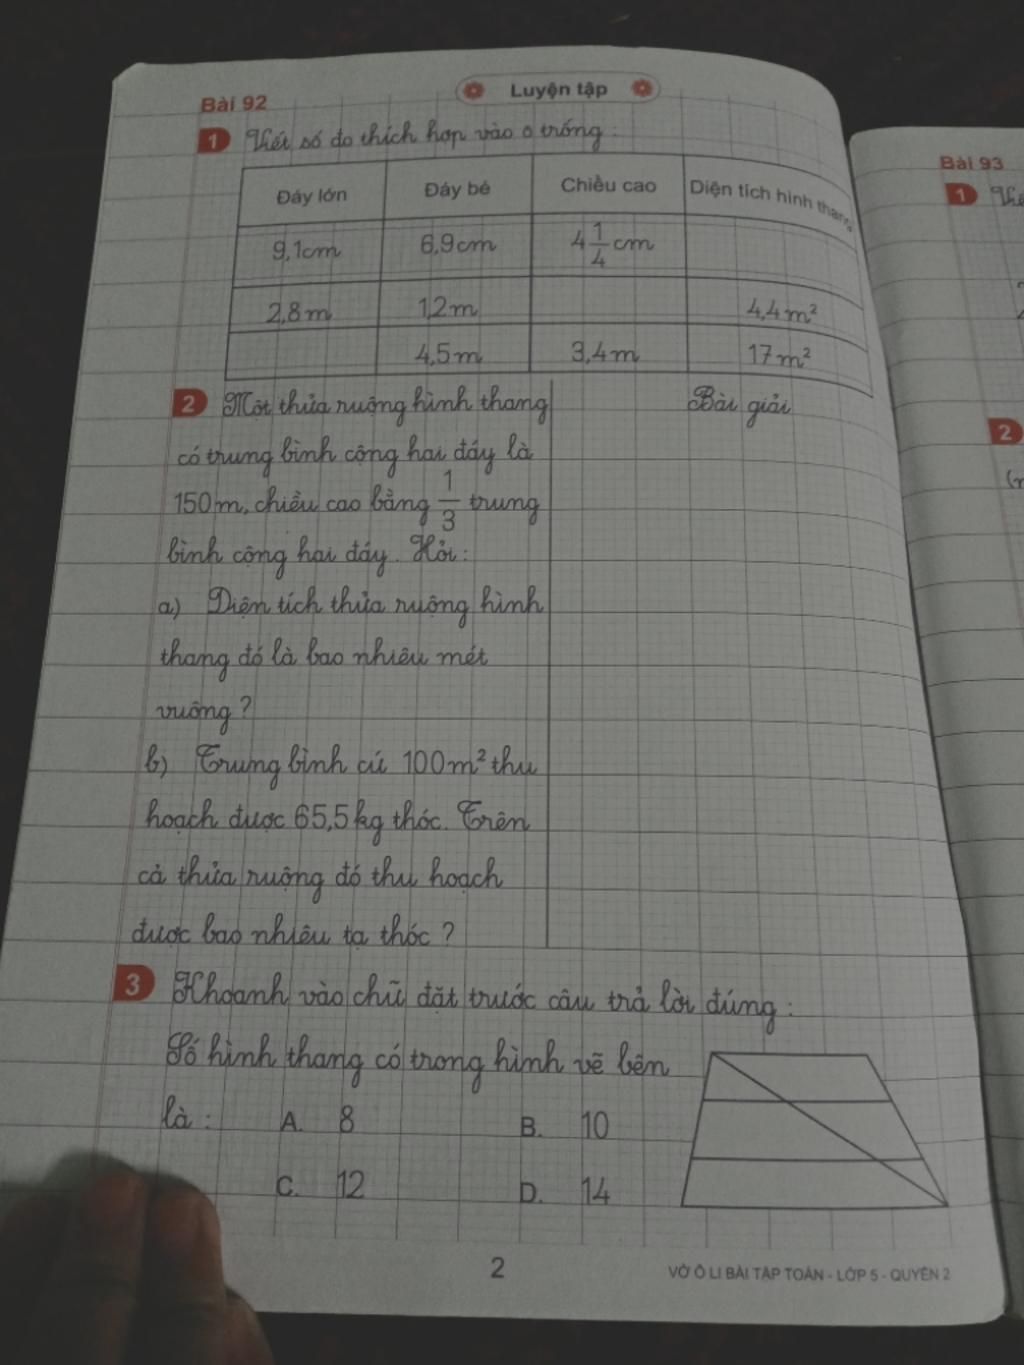 Bài 92
Luyện tập
1 Viết số đo thích hợp vào ô trống:
Đáy lớn Đáy bé Chiều cao Diện tích hình thang
9,1cm 6,9cm 4 1/4 cm
2,8m 1,2m 4,4m²
4,5m 3,4m 17m²
2 Một thửa ruộng hình thang
có trung bình cộng hai đáy là
150m, chiều cao bằng 1/3 trung
bình cộng hai đáy. Hỏi:
a) Diện tích thửa ruộng hình
thang đó là bao nhiêu mét
vuông?
b) Trung bình cứ 100m² thu
hoạch được 65,5kg thóc. Trên
cả thửa ruộng đó thu hoạch
được bao nhiêu tạ thóc?
Bài giải
3 Khoanh vào chữ đặt trước câu trả lời đúng:
Số hình thang có trong hình vẽ bên
là: A. 8 B. 10
C. 12 D. 14
2
VỞ Ô LI BÀI TẬP TOÁN - LỚP 5 - QUYỂN 2
Bài 93
1
2